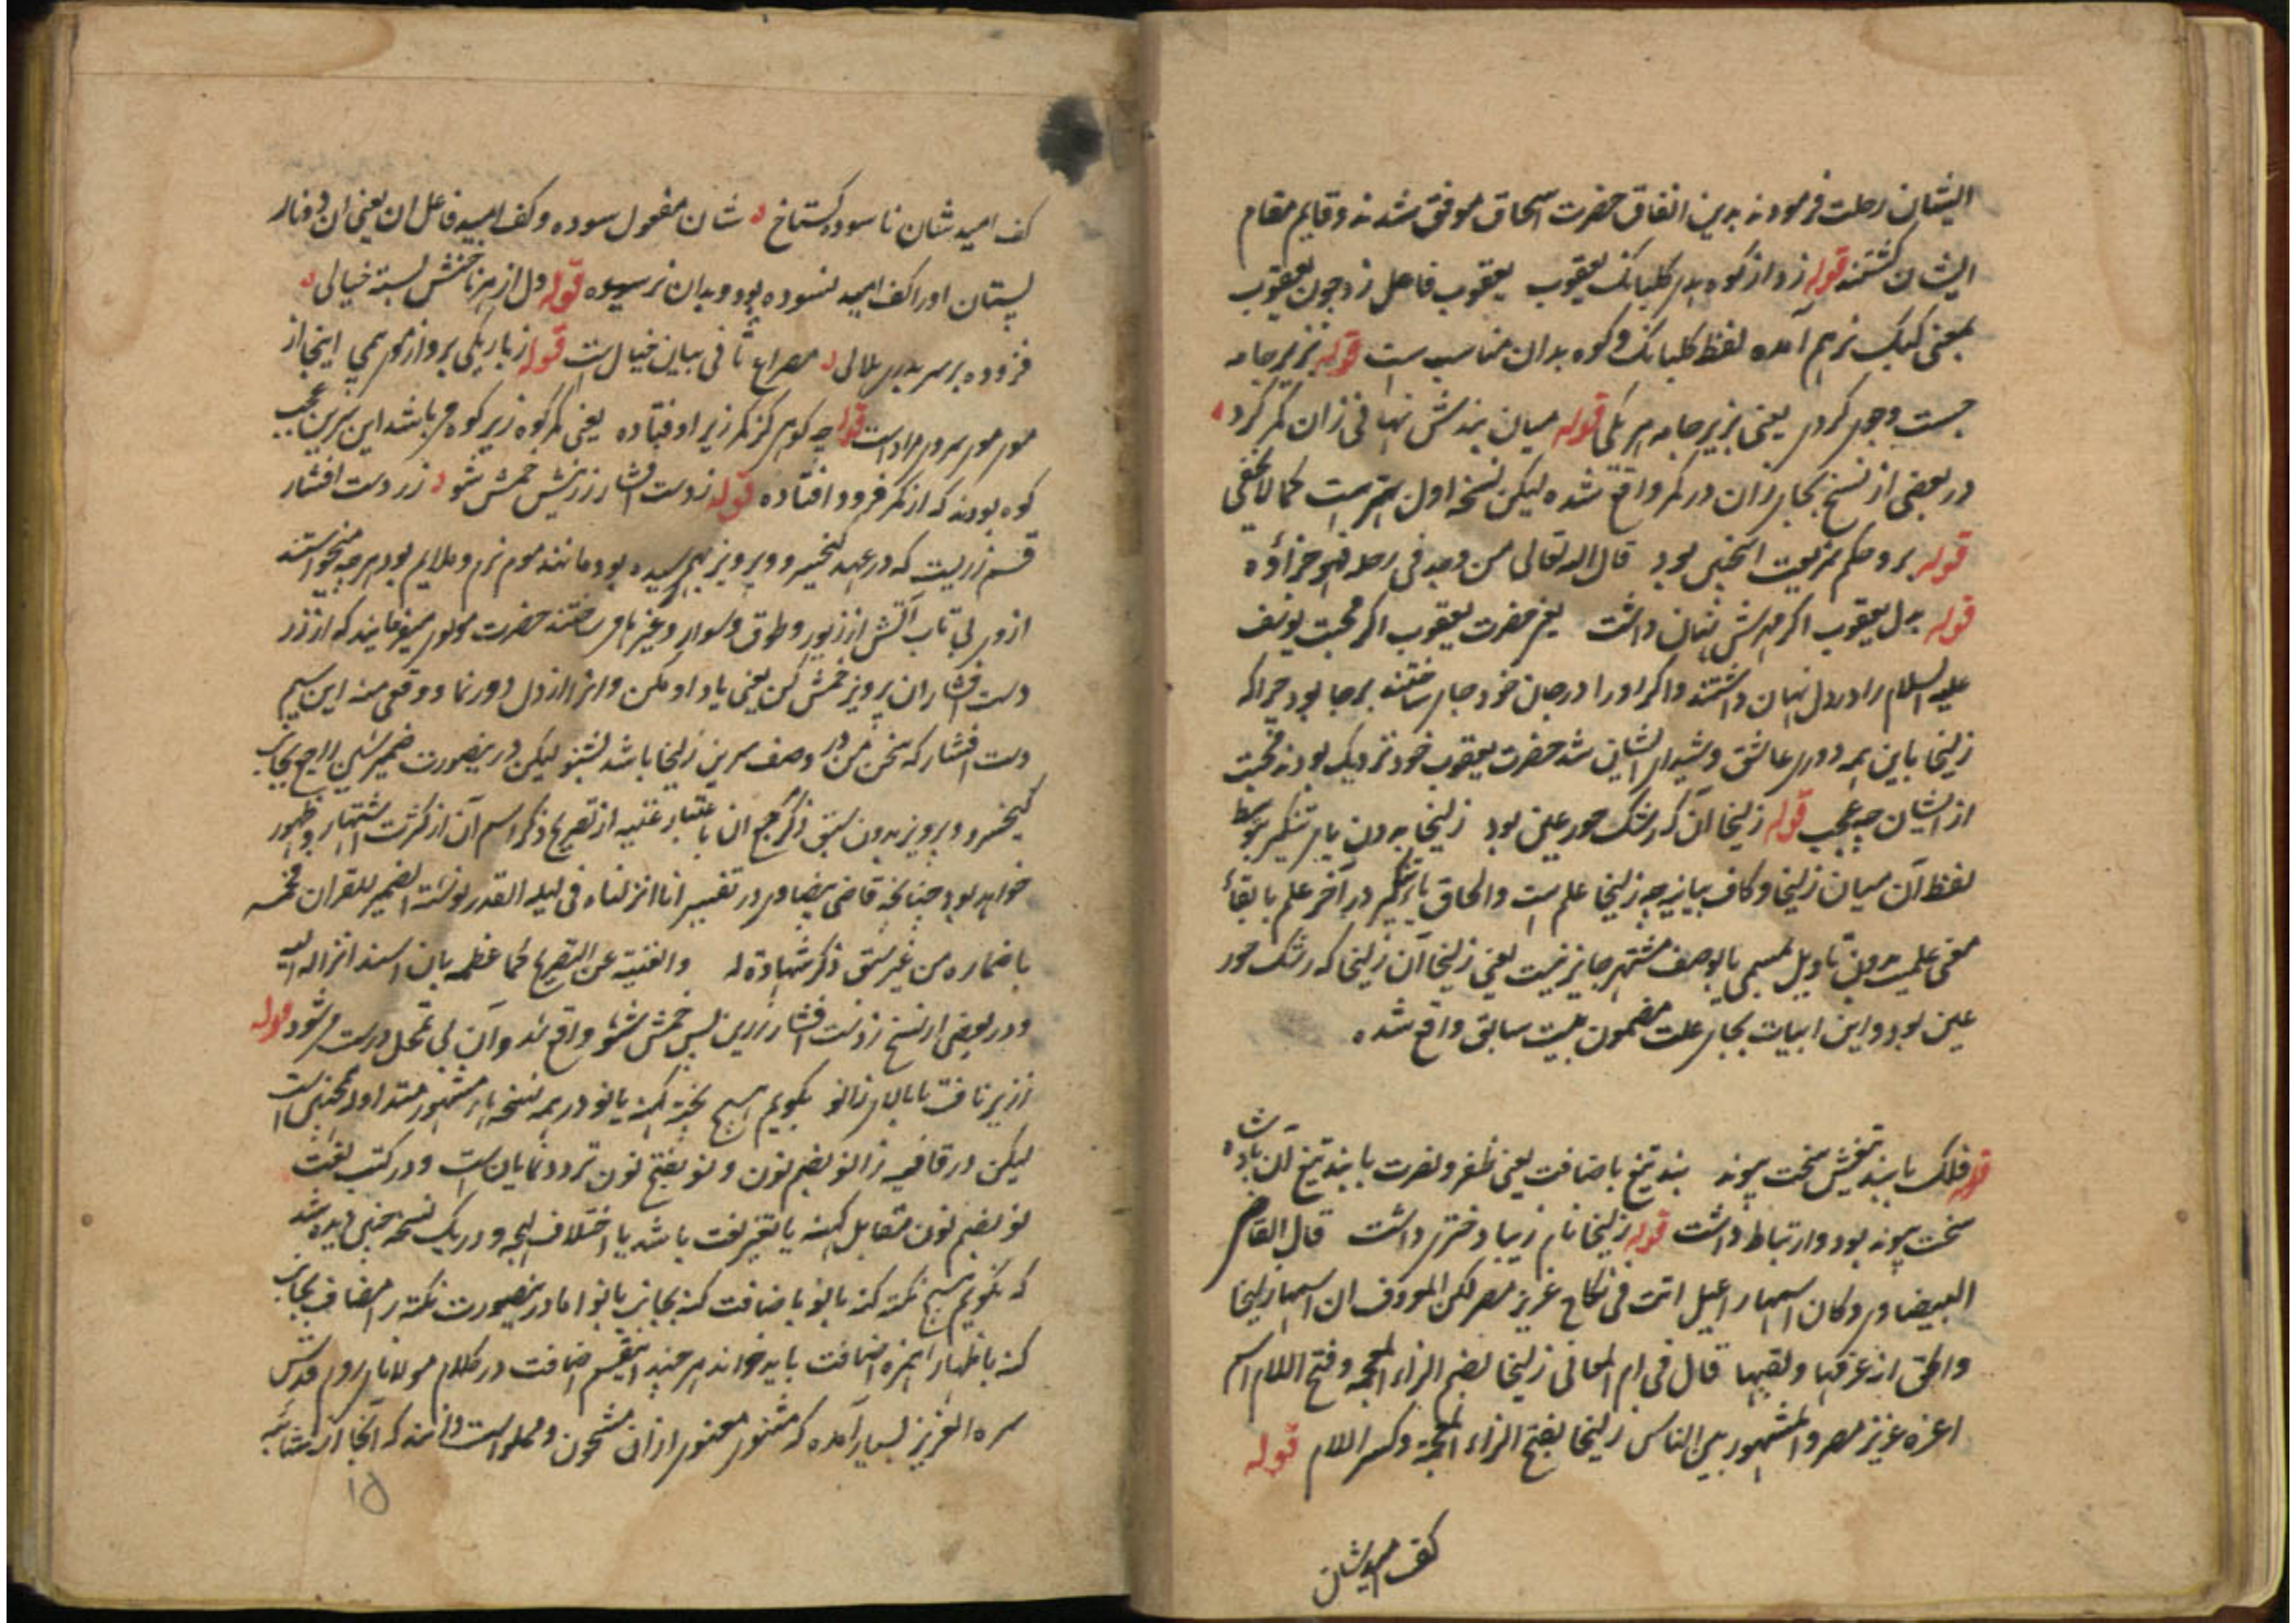 ایشان رحلت فرمودند بدین اتفاق حضرت اسحاق موفق شدند و قایم مقام
ایشان کشتند قوله زد از کوه بدر کلبانک یعقوب یعقوب فاعل زد چون یعقوب
بمعنی کبک نر هم آمده لفظ کلبانک و کوه بدان مناسب ست قوله بزیر جامه
جست وجوی کردی یعنی بزیر جامه هر یکی قوله میان بندش نهانی زان کمر کرد
در بعضی از نسخ بجای زان در کمر واقع شده لیکن نسخه اول بهتر ست کما لا یخفی
قوله برو حکم شریعت اینچنین بود قال الله تعالی من وجد فی رحله فهو جزاؤه
قوله بدل یعقوب اکر مهرش نهان داشت یعنی حضرت یعقوب اکر محبت یوسف
علیه السلام را در دل نهان داشتند و اکر او را در جان خود جای ساختند بر جا بود چرا که
زلیخا باین همه دوری عاشق و شیدای ایشان شد حضرت یعقوب خود نزدیک بودند محبت
از ایشان چه عجب قوله زلیخا آن که رشک حور عین بود زلیخا بدون یای تنکیر بتوسط
لفظ آن میان زلیخا و کاف بیانیه چه زلیخا علم ست و الحاق یای تنکیر در آخر علم با بقاء
معنی علمیت بدون تاویل مسمی بالوصف مشتهر جایز نیست یعنی زلیخا آن زلیخا که رشک حور
عین بود و این ابیات بجای علت مضمون بیت سابق واقع شده
قوله فلک با بند تیغش سخت پیوند بند تیغ باضافت یعنی ظفر و نصرت با بند تیغ آن بادشاه
سخت پیوند بود و ارتباط داشت قوله زلیخا نام زیبا دختری داشت قال القاضی
البیضاوی و کان اسمها راعیل اتت فی نکاح عزیز مصر لکن المعروف ان اسمها زلیخا
والحق ان عرفها و لقبها قال فی ام المعانی زلیخا بضم الزاء المعجمه و فتح اللام اسم
اعزه عزیز مصر والمشهور بین الناس زلیخا بفتح الزاء المعجمة و کسر اللام قوله
کف امید شان
کف امید شان نا سوده کستاخ شان مفعول سوده و کف امید فاعل ان یعنی ان دو نار
پستان او را کف امید نسوده بود و بدان نرسیده قوله دل از هر ناخنش بسته خیالی
فزوده بر سر بدری هلالی مصراع ثانی بیان خیال ست قوله ز باریکی برو از موی بیمی اینجا از
موی موی سر مراد است قوله چه کوهی کز کمر زیر اوفتاده یعنی کمر کوه زیر کوه می باشد این سرین عجب
کوه بودند که از کمر فرود افتاده قوله ز دست افشار زرینش خمش شو زر دست افشار
قسم زریست که در عهد کیخسرو و پرویز بهم رسیده بود مانند موم نرم و ملایم بود هر چه میخواستند
از وی بی تاب آتش از زیور و طوق و سوار و غیرها می ساختند حضرت مولوی میفرمایند که از زر
دست افشار ان پرویز خمش کن یعنی یاد او مکن و انرا از دل دور نما و وقعی منه این سیم
دست افشار که سخن من در وصف سرین زلیخا باشد بشنو لیکن درینصورت ضمیر شین راجع بجانب
کیخسرو و پرویز بدون سبق ذکر مرجع ان باعتبار غنیه از تصریح ذکر اسم آن از کثرت اشتهار و ظهور
خواهد بود چنانچه قاضی بیضاوی در تفسیر انا انزلناه فی لیلة القدر نوشته الضمیر للقران فخمه
باضماره من غیر سبق ذکر شهادة له والغنیة عن التصریح کما عظمه بان اسند انزاله الیه
و در بعضی از نسخ ز دست افشار زرین بس خمش شو واقع شد و آن بی تمحل درست می شود قوله
ز زیر ناف تا بالای زانو بکویم هیچ بجز آنکه یا نو در همه نسخهاء مشهور متداوله همچنین است
لیکن در قافیه زانو بضم نون و نو بفتح نون تردد نمایان است و در کتب لغت
نو بضم نون مقابل کهنه یا تغیر لغت باشد یا اختلاف لهجه و در یک نسخه چنین دیده شد
که نکویم هیچ نکته کنه بانو باضافت کنه بجانب بانو اما درینصورت نکته را مضاف بجانب
کنه باظهار همزه اضافت باید خواند هر چند اینقسم اضافت در کلام مولانای روم قدس
سره العزیز بسیار آمده که مثنوی معنوی از ان مشحون و مملو است که آنجا از
۱۵